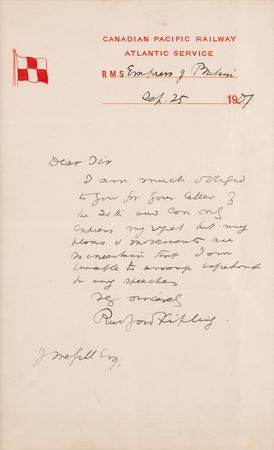 CANADIAN PACIFIC RAILWAY
ATLANTIC SERVICE
R.M.S. Empress of Britain
Sep. 25 1907
Dear Sir
I am much obliged
to you for your letter of
the 20th and can only
express my regret but my
plans & movements are
so uncertain that I am
unable to arrange beforehand
for any speeches
Very sincerely
Rudyard Kipling.
J Esq.